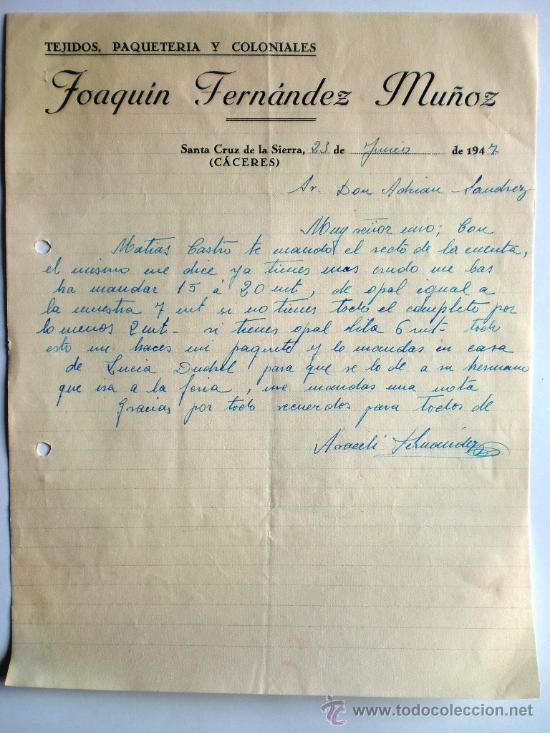 TEJIDOS, PAQUETERIA Y COLONIALES
Joaquín Fernández Muñoz
Santa Cruz de la Sierra, 23 de Junio de 1947
(CÁCERES)
Sr. Don Adrian Sandrez
Muy señor mio; Con
Matias Castro te mando el resto de la cuenta,
el mismo me dice ya tienes mas crudo me bas
ha mandar 15 á 20 mt, de opal egual a
la muestra 7 mt si no tienes todo el completo por
lo menos 2 mt - si tienes opal lila 6 mt todo
esto me haces un paquete y lo mandas en casa
de Lucia para que se lo de a su hermano
que ira a la feria, me mandas una nota
Gracias por todo recuerdos para todos de
Araceli Fernandez
todocoleccion.net